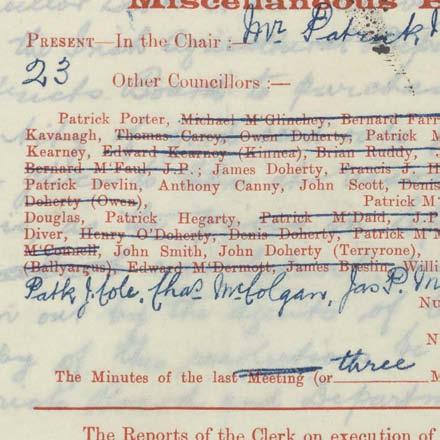 Miscellaneous
PRESENT—In the Chair :— Mr Patrick
23 Other Councillors :—
Patrick Porter, Michael M'Glinchey, Bernard Farr
Kavanagh, Thomas Carey, Owen Doherty, Patrick M
Kearney, Edward Kearney (Kinnea), Brian Ruddy,
Bernard M'Faul, J.P.; James Doherty, Francis J. H
Patrick Devlin, Anthony Canny, John Scott, Denis
Doherty (Owen), Patrick M'
Douglas, Patrick Hegarty, Patrick M'Daid, J.P.
Diver, Henry O'Doherty, Denis Doherty, Patrick M'
M'Connell, John Smith, John Doherty (Terryrone),
(Ballyargus), Edward M'Dermott, James Breslin, Willi
Patk J. Cole, Chas McColgan, Jas P. M
Nu
N
The Minutes of the last Meeting (or three M
The Reports of the Clerk on execution of